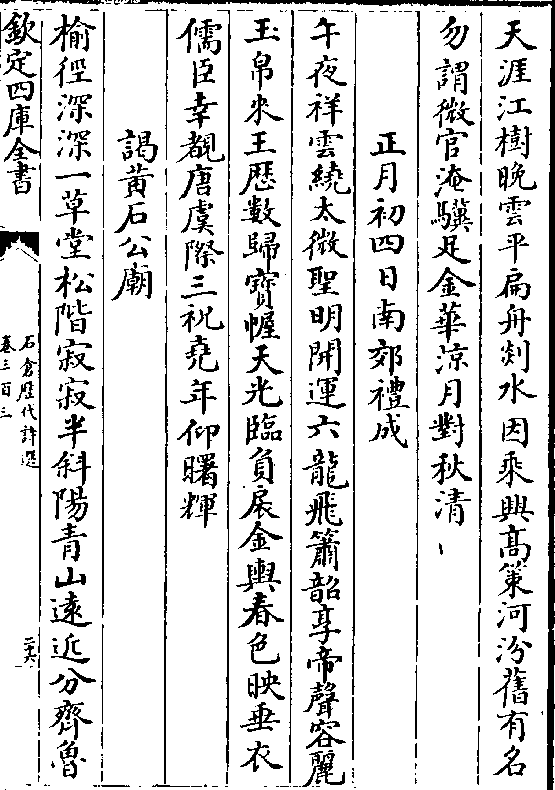 天涯江樹晩雲平扁舟剡水因乘興髙策河汾舊有名
勿謂微官淹驥足金華凉月對秋清
正月初四日南郊禮成
午夜祥雲繞太微聖明開運六龍飛簫韶享帝聲容麗
玉帛來王歴數歸寳幄天光臨負扆金輿春色映垂衣
儒臣幸覩唐虞際三祝堯年仰曙輝
謁黄石公廟
榆徑深深一草堂松階寂寂半斜陽青山遠近分齊魯
欽定四庫全書
石倉歴代詩選
卷三百三
二十六